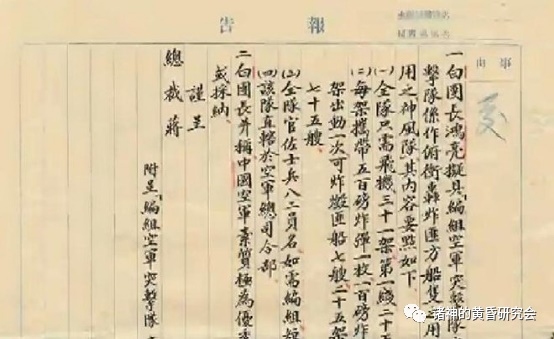 報告
事由
一白團長鴻亮擬具「編組空軍突擊隊
擊隊係作俯衝轟炸匪方船隻之用
用之神風隊其內容要點如下
(一)全隊只需飛機三十一架第一線二十
(二)每架攜帶五百磅炸彈一枚一百磅炸
架出動一次可炸燬匪船七艘二十五架
七十五艘
(三)全隊官佐士兵八二員名如需編組
(四)該隊直轄於空軍總司令部
二白團長并稱中國空軍素質極為優
或採納
謹呈
總裁蔣
附呈「編組空軍突擊隊
诸神的黄昏研究会